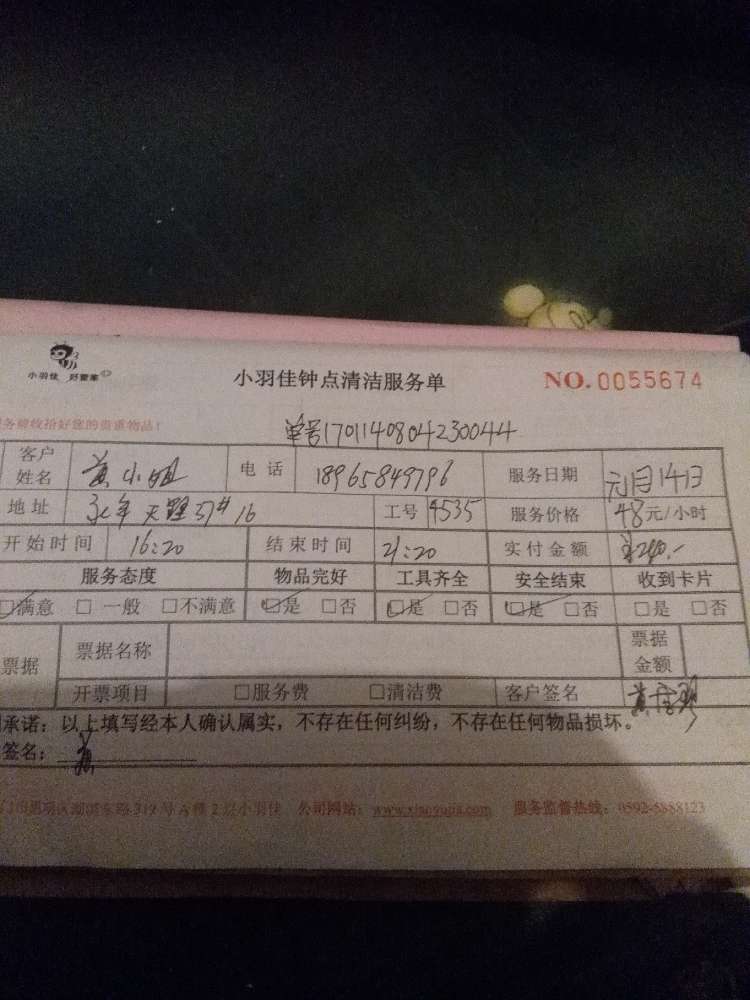 小羽佳 好管家
小羽佳钟点清洁服务单 NO.0055674
务前收拾好您的贵重物品!
单号1701140804230044
客户姓名 黄小姐 电话 18965849796 服务日期 元月14日
地址 永年天墅37#16 工号 4535 服务价格 48元/小时
开始时间 16:20 结束时间 21:20 实付金额 ¥240.-
服务态度 物品完好 工具齐全 安全结束 收到卡片
☑满意 □一般 □不满意 ☑是 □否 ☑是 □否 ☑是 □否 □是 □否
票据 票据名称 票据金额
开票项目 □服务费 □清洁费 客户签名
承诺:以上填写经本人确认属实,不存在任何纠纷,不存在任何物品损坏。
签名:
319号A楼2 小羽佳 公司网站:www.xiaoyujia.com 服务监督热线:0592-5888123